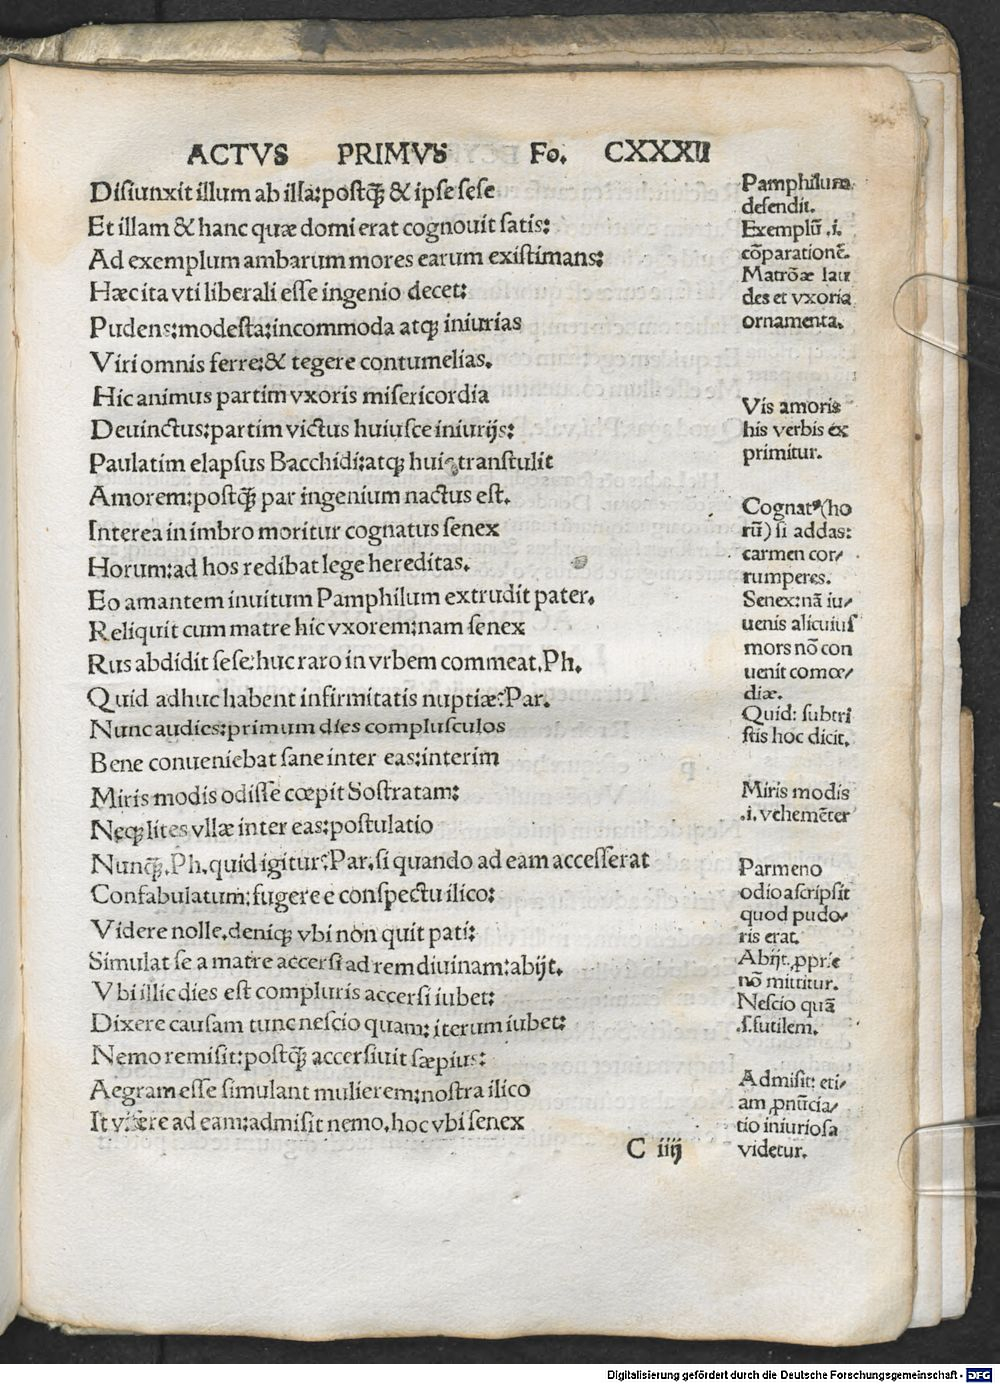 ACTVS PRIMVS Fo. CXXXII
Disiunxit illum ab illa: postq̃ & ipse sese
Et illam & hanc quæ domi erat cognouit satis:
Ad exemplum ambarum mores earum existimans:
Hæc ita vti liberali esse ingenio decet:
Pudens: modesta: incommoda atq; iniurias
Viri omnis ferre: & tegere contumelias.
Hic animus partim vxoris misericordia
Deuinctus: partim victus huiusce iniurijs:
Paulatim elapsus Bacchidi: atq; huic transtulit
Amorem: postq̃ par ingenium nactus est.
Interea in imbro moritur cognatus senex
Horum: ad hos redibat lege hereditas.
Eo amantem inuitum Pamphilum extrudit pater.
Reliquit cum matre hic vxorem: nam senex
Rus abdidit sese: huc raro in vrbem commeat. Ph.
Quid adhuc habent infirmitatis nuptiæ? Par.
Nunc audies: primum dies complusculos
Bene conueniebat sane inter eas: interim
Miris modis odisse cœpit Sostratam:
Neq; lites vllæ inter eas: postulatio
Nunq̃. Ph. quid igitur? Par. si quando ad eam accesserat
Confabulatum: fugere e conspectu ilico:
Videre nolle. deniq; vbi non quit pati:
Simulat se a matre accersi ad rem diuinam: abijt.
Vbi illic dies est compluris accersi iubet:
Dixere causam tunc nescio quam: iterum iubet:
Nemo remisit: postq̃ accersiuit sæpius:
Aegram esse simulant mulierem: nostra ilico
It visere ad eam: admisit nemo. hoc vbi senex
C iiij
Pamphilum
defendit.
Exemplũ .i.
cõparationẽ.
Matrõæ lau
des et vxoria
ornamenta.
Vis amoris
his verbis ex
primitur.
Cognatꝰ (ho
rũ) si addas:
carmen cor-
rumperes.
Senex: nã iu-
uenis alicuius
mors nõ con
uenit comœ-
diæ.
Quid: subtri
stis hoc dicit.
Miris modis
.i. vehemẽter
Parmeno
odio ascripsit
quod pudo-
ris erat.
Abijt. ꝓprie
nõ mittitur.
Nescio quã
.s. futilem.
Admisit: eti-
am ꝓnũcia-
tio iniuriosa
videtur.
Digitalisierung gefördert durch die Deutsche Forschungsgemeinschaft - DFG